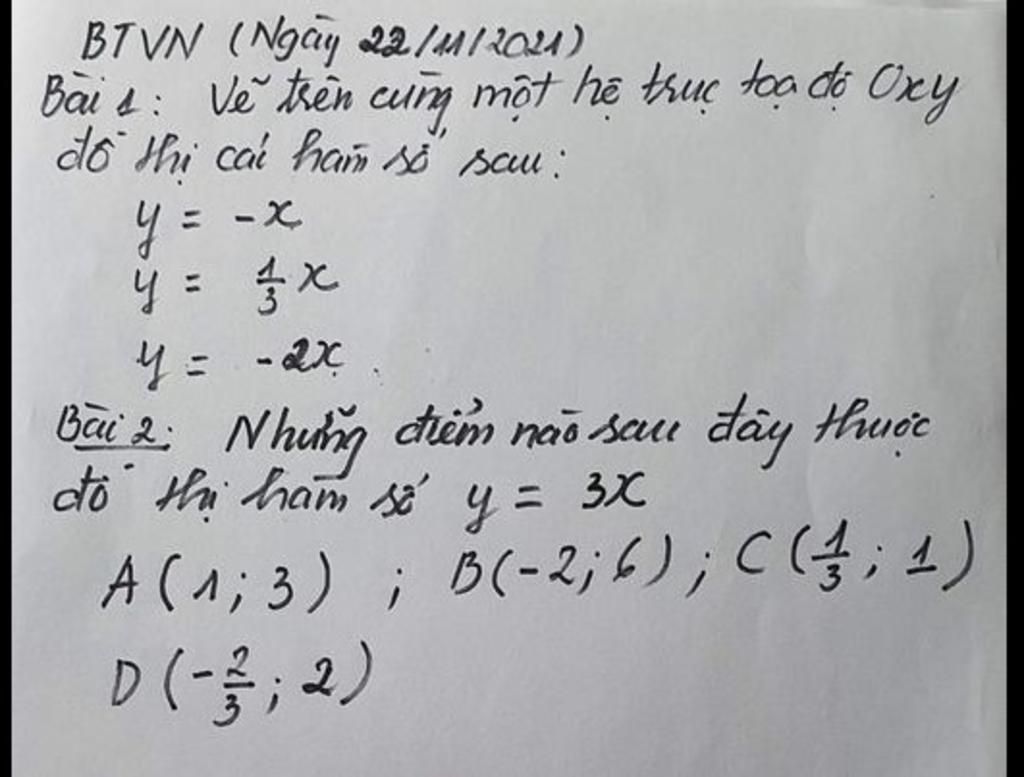 BTVN (Ngày 22/11/2021)
Bài 1: Vẽ trên cùng một hệ trục toạ độ Oxy
đồ thị cái hàm số sau:
y = -x
y = 1/3 x
y = -2x.
Bài 2: Những điểm nào sau đây thuộc
đồ thị hàm số y = 3x
A(1; 3) ; B(-2; 6) ; C(1/3; 1)
D(-2/3; 2)